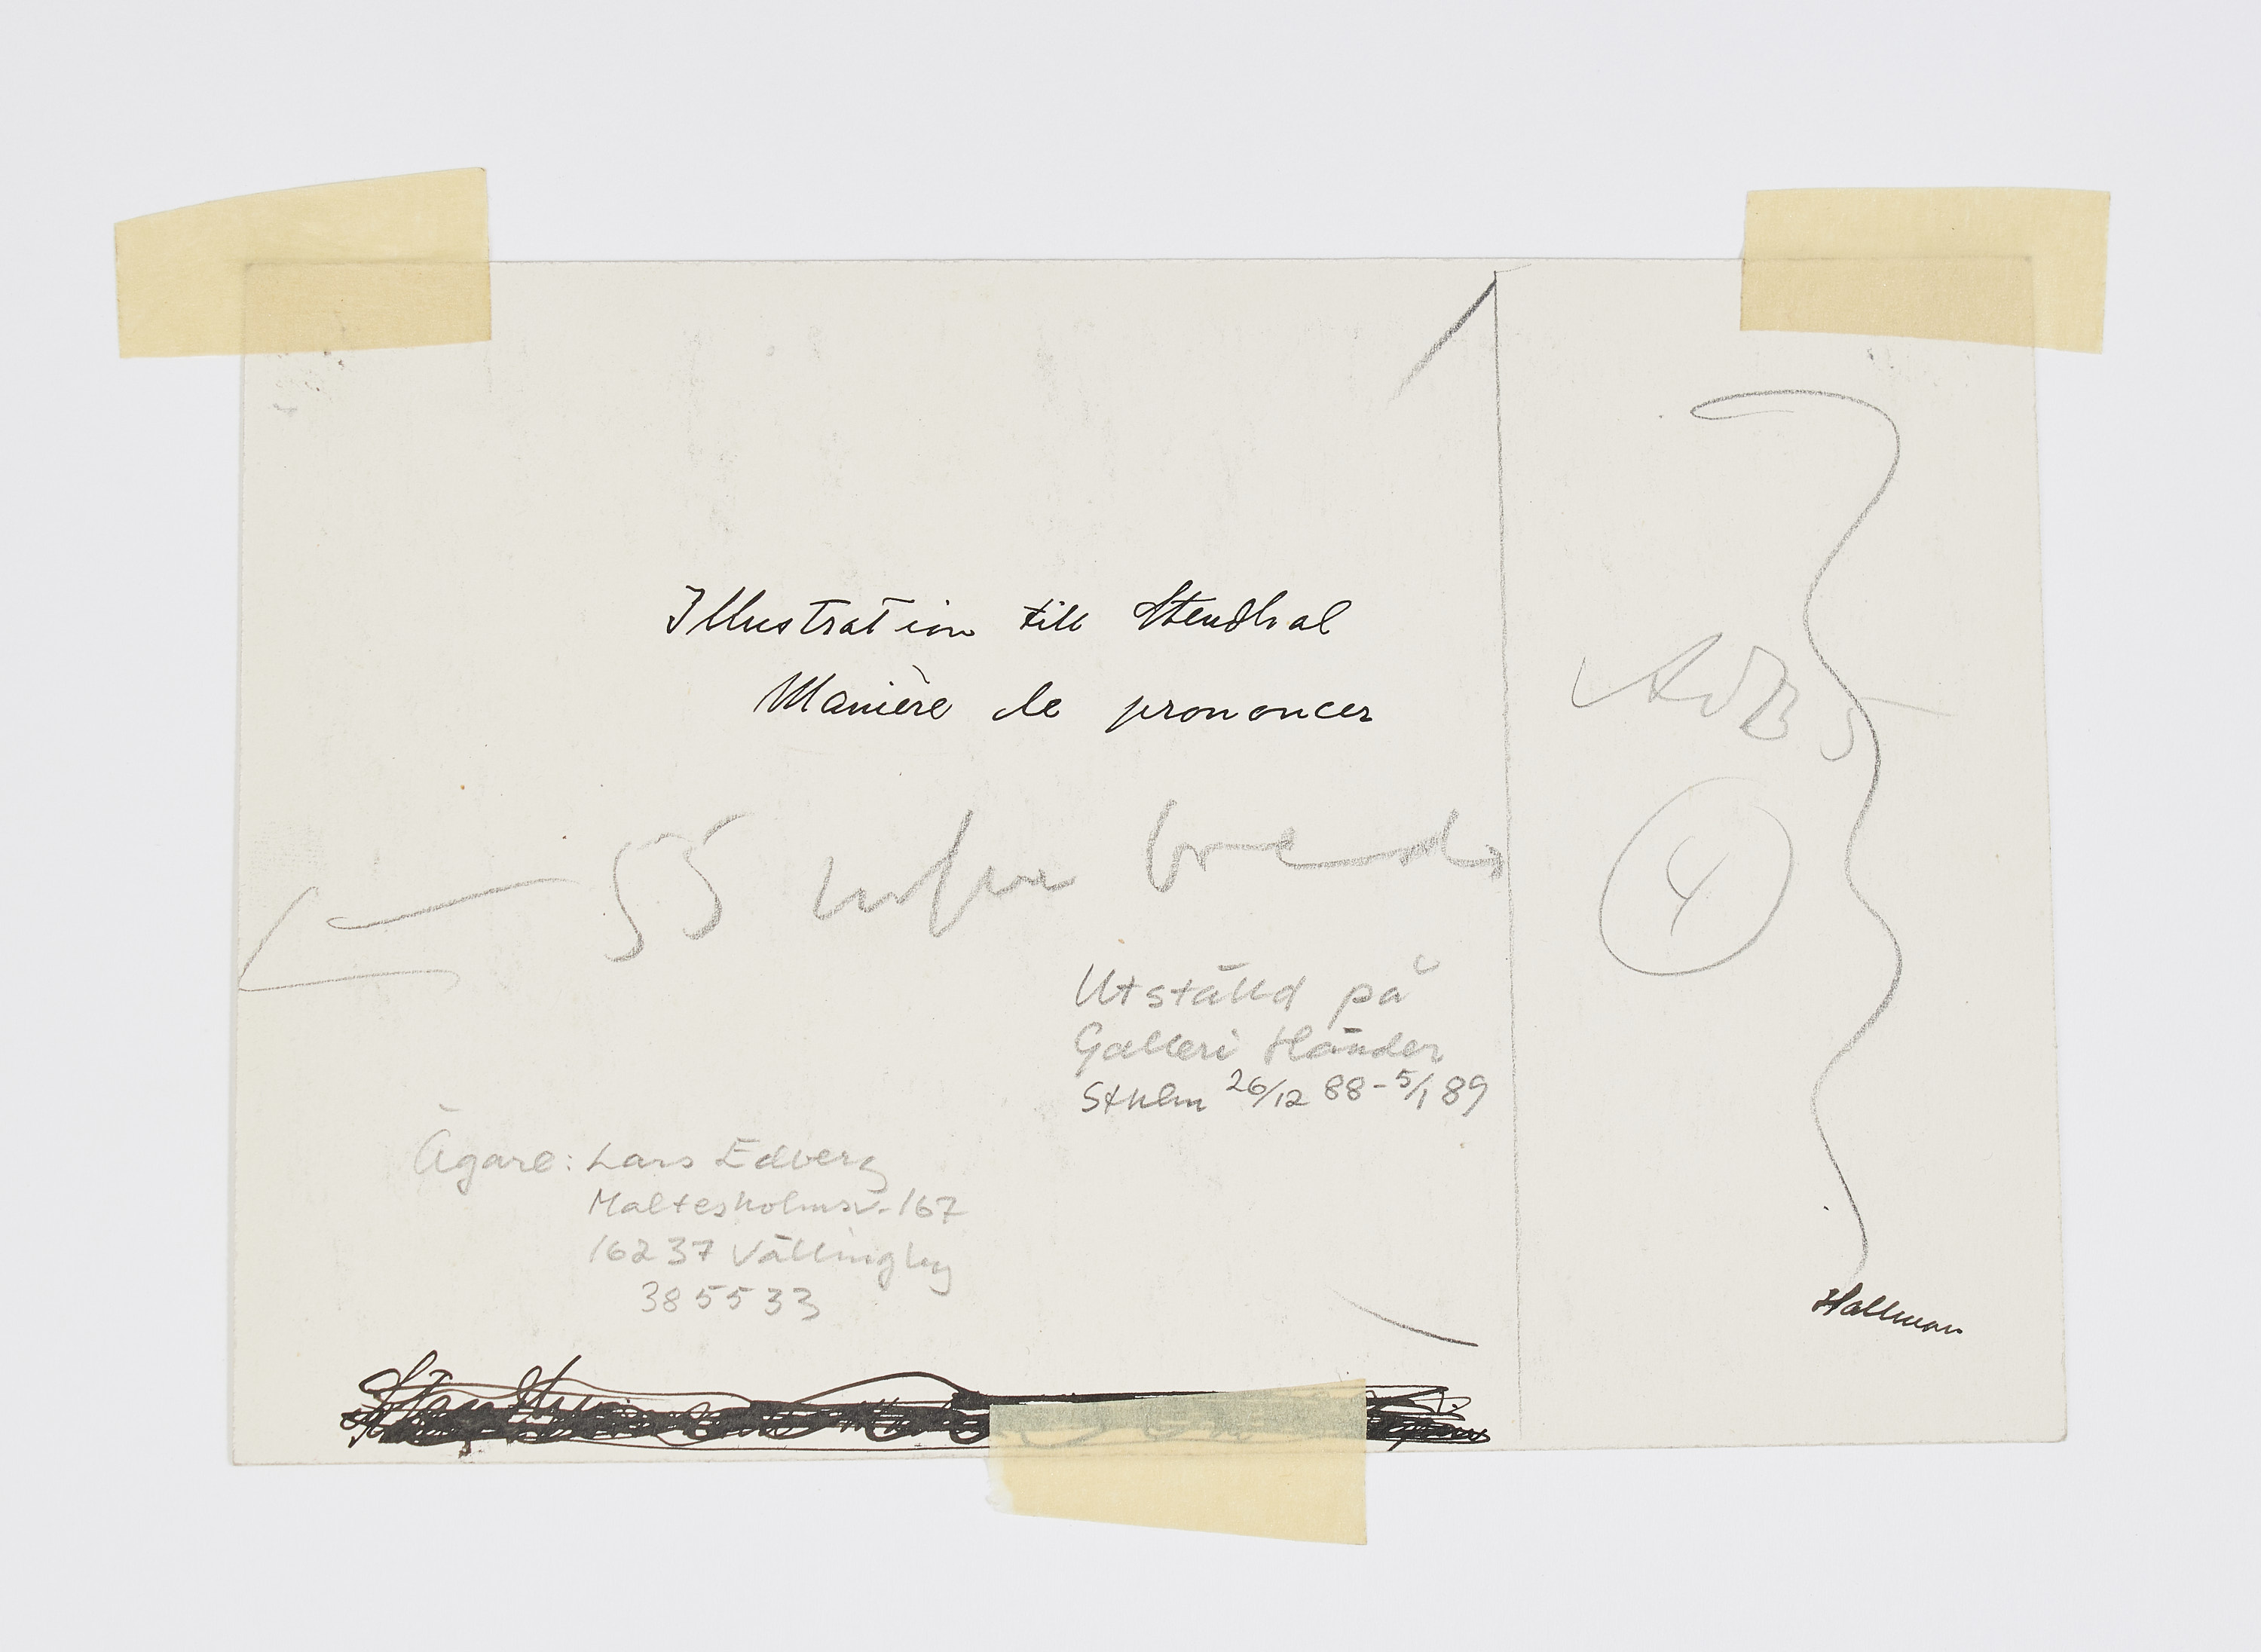 Illustration till Stendhal
Manière de prononcer
55
4
Utställd på
Galleri Händer
Sthlm 26/12 88 - 5/1 89
Ägare: Lars Edberg
Maltesholmsv. 167
162 37 Vällingby
38 55 33
Hallman